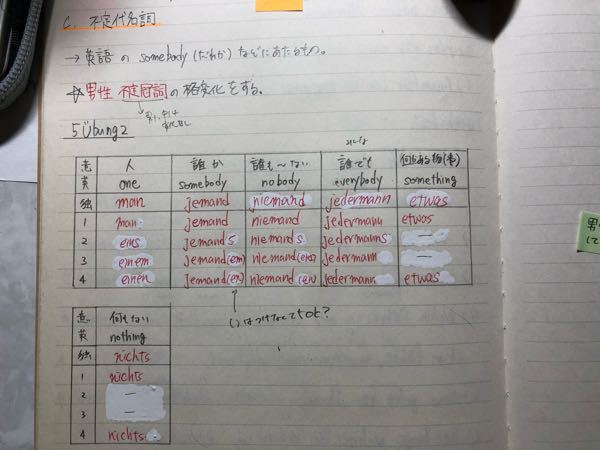 C. 不定代名詞
→ 英語の somebody (だれか) などにあたるもの。
☆男性 不定冠詞の格変化をする。
5 Übung 2
意 人 誰か 誰も〜ない 誰でも 何かある物(事)
英 one somebody nobody everybody something
独 man jemand niemand jedermann etwas
1 man jemand niemand jedermann etwas
2 eins jemands niemands jedermanns —
3 einem jemand(em) niemand(em) jedermann —
4 einen jemand(en) niemand(en) jedermann etwas
↑
()はつけなくてもok?
意 何もない
英 nothing
独 nichts
1 nichts
2 —
3 —
4 nichts